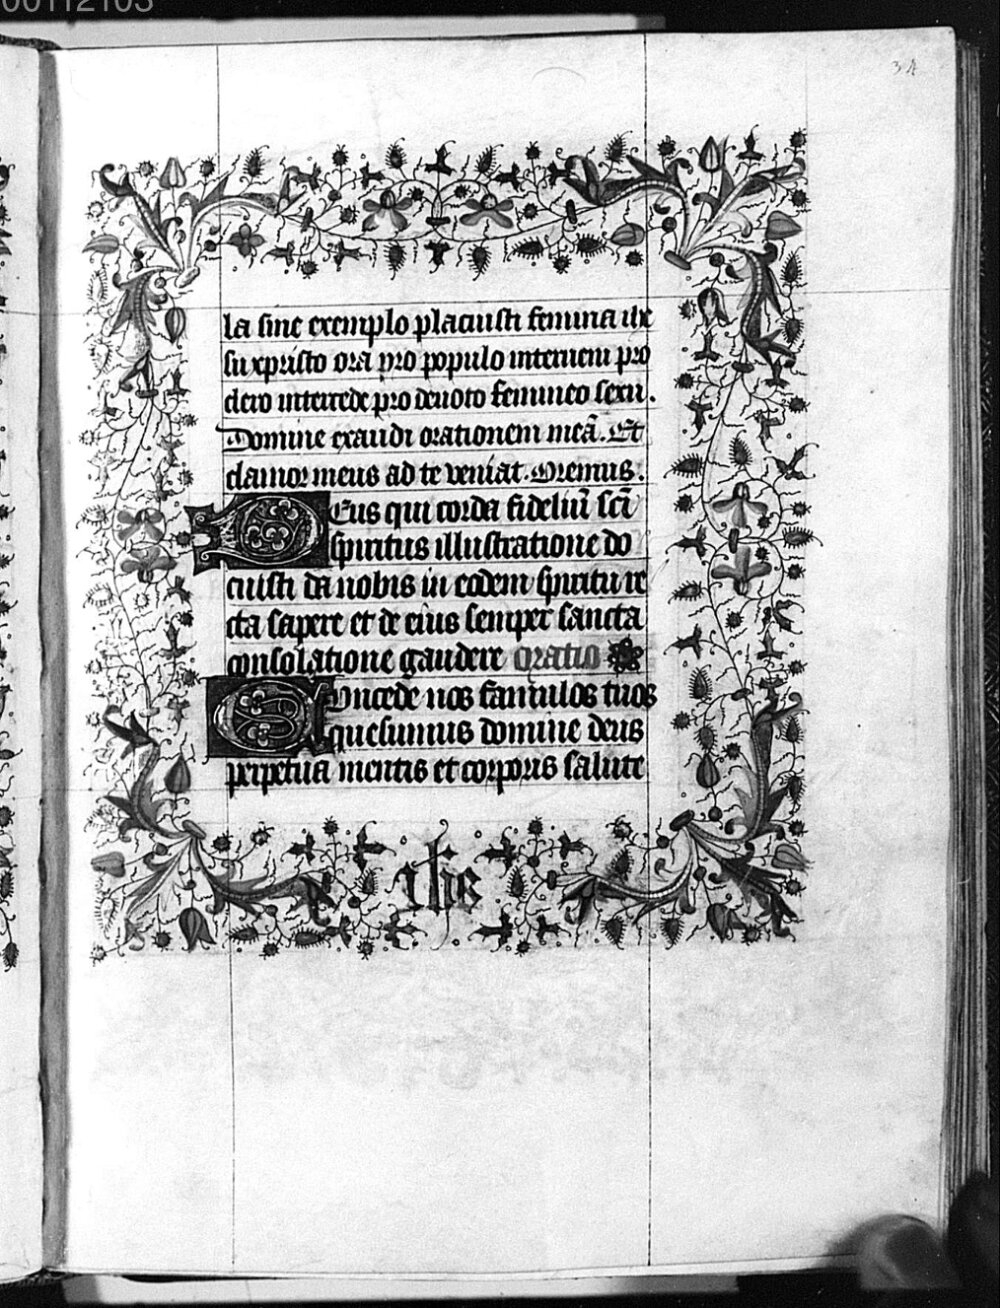 00112103
34
la sine exemplo placuisti femina ihe
su xpristo ora pro populo interueni pro
clero intercede pro deuoto femineo sexu.
Domine exaudi orationem meā. Et
clamor meus ad te veniat. Oremus.
Deus qui corda fideliū scī
spiritus illustratione do
cuisti da nobis in eodem spiritu re
cta sapere et de eius semper sancta
consolatione gaudere oratio
Concede nos famulos tuos
quesumus domine deus
perpetua mentis et corporis salute
ihs